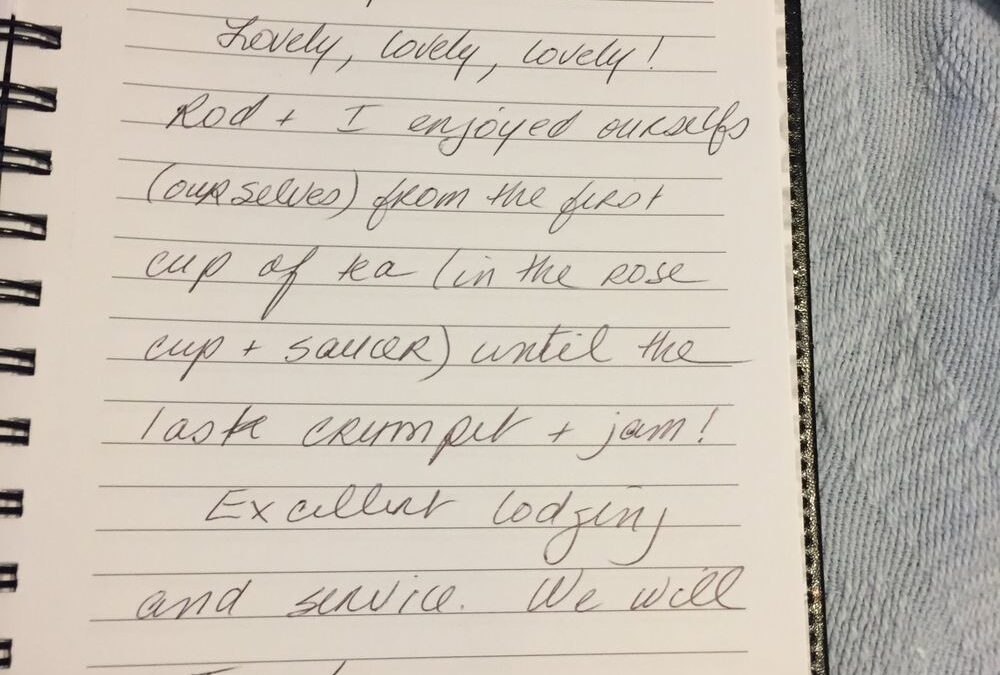 Lovely, lovely, lovely!
Rod + I enjoyed ourselfs
(ourselves) from the first
cup of tea (in the rose
cup + saucer) until the
laste crumpet + jam!
Excellent lodging
and service. We will